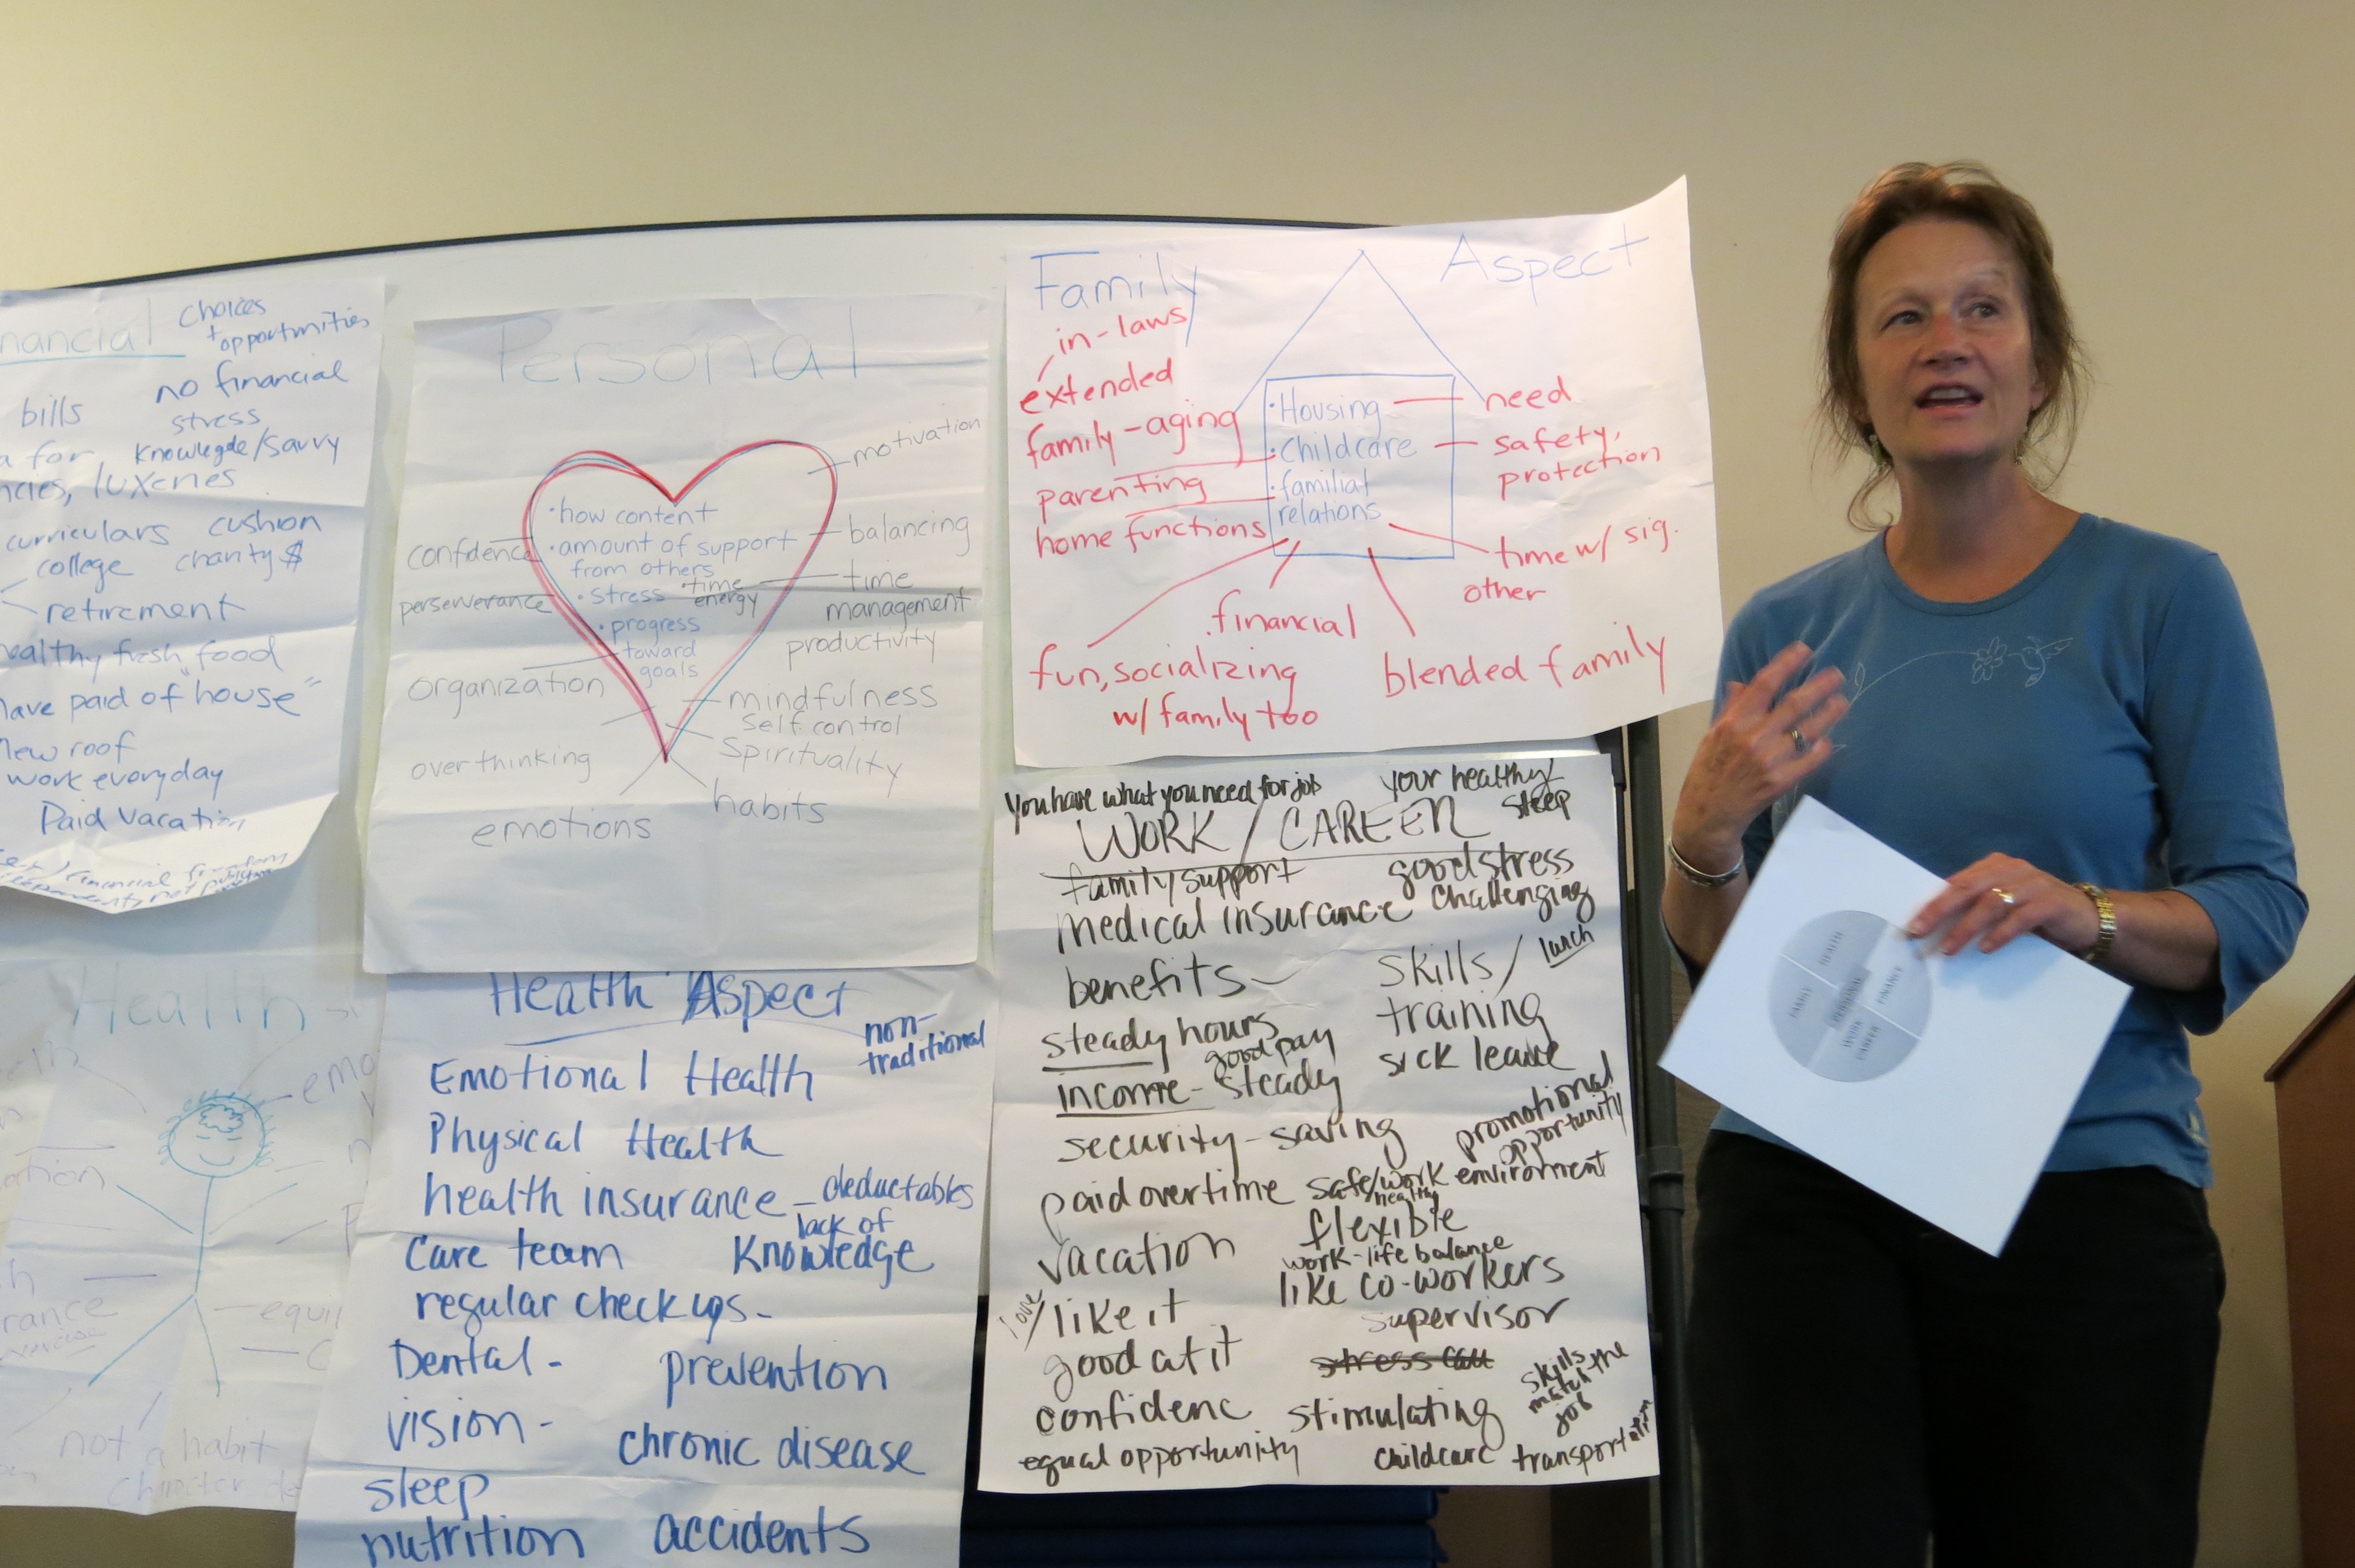 choices
+ opportunities
nancial
no financial
stress
bills
knowlegde/savvy
a for
ncies, luxeries
curriculars cushion
college charity $
retirement
ealthy fresh food
have paid of "house"
new roof
work everyday
Paid Vacation
Personal
motivation
• how content
• amount of support
from others
• stress • time
energy
• progress
toward
goals
confidence
balancing
perserverance
time
management
productivity
organization
mindfulness
self control
Spirituality
over thinking
habits
emotions
Family Aspect
in-laws
extended
family-aging
parenting
home functions
• Housing
• Childcare
• familial
relations
need
safety,
protection
time w/ sig.
other
financial
fun, socializing
w/ family too
blended family
Health
emo
ation
rance
equi
not a habit
Health Aspect
non-
traditional
Emotional Health
Physical Health
health insurance - deductables
lack of
Care team Knowledge
regular check ups-
Dental - prevention
vision -
chronic disease
sleep
nutrition accidents
You have what you need for job
your healthy/
sleep
WORK / CAREER
family support
good stress
medical insurance challenging
benefits
skills / lunch
training
steady hours
good pay
sick leave
income - steady
promotional
opportunity
security - saving
paid overtime
safe/work environment
healthy
flexible
vacation
work-life balance
like co-workers
love/like it
supervisor
good at it
confidenc
stimulating
skills
match the
job
equal opportunity
childcare transportation
HEALTH
FINANCE
PERSONAL
FAMILY
WORK
CAREER